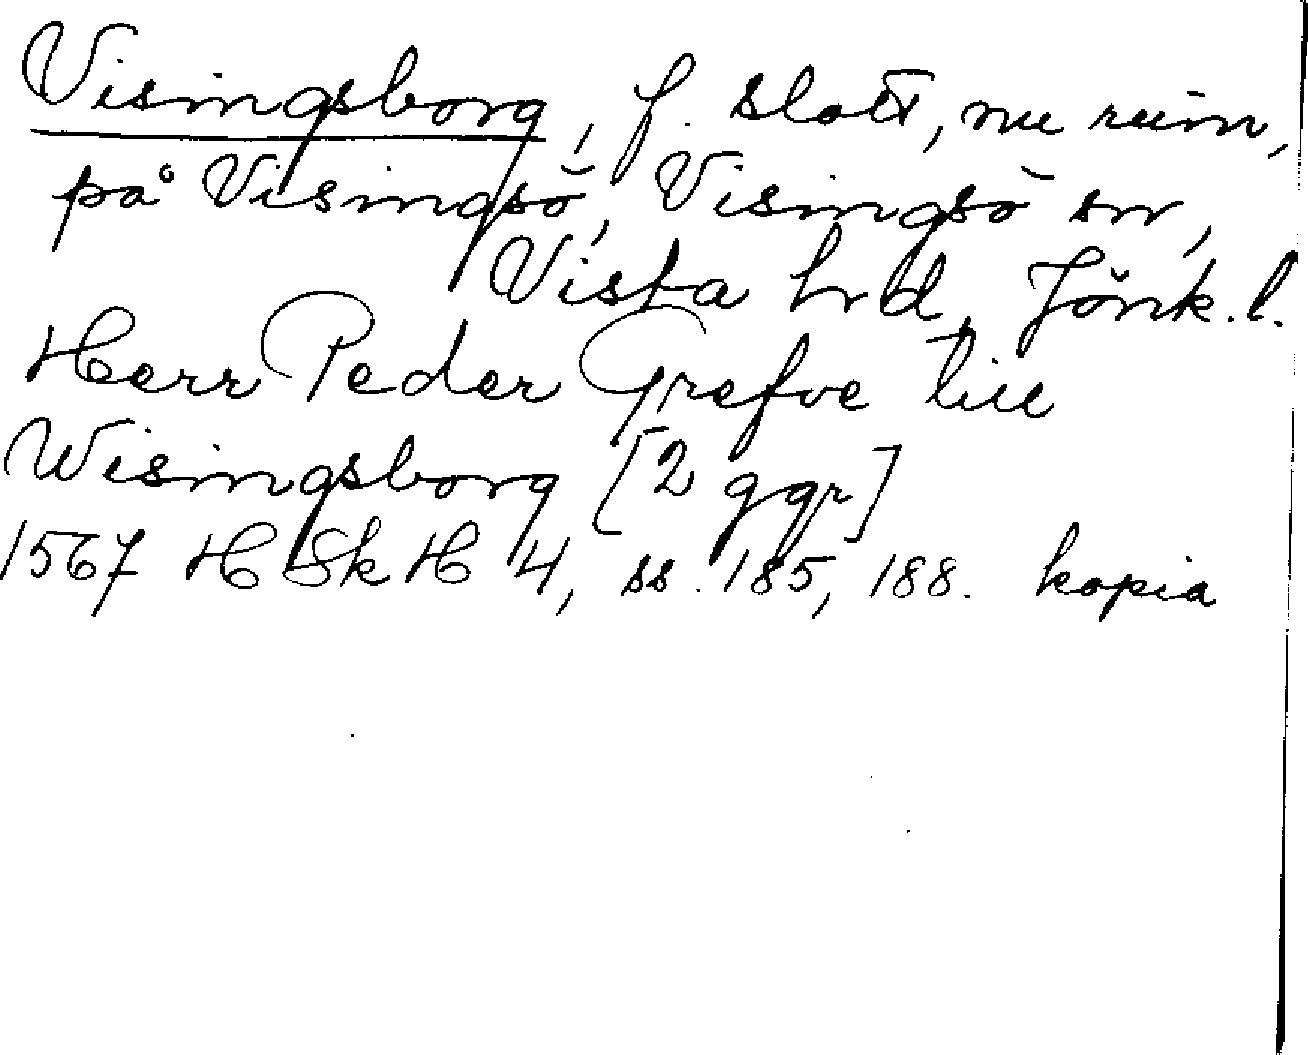 Visingsborg, f. slott, nu ruin,
på Visingsö, Visingsö sn,
Vista hrd, Jönk. l.
Herr Peder Grefve till
Wisingsborg [2 ggr]
1567 HSkH 4, ss. 185, 188. kopia